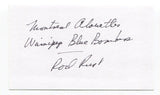 Montreal Alouettes
Winnipeg Blue Bombers
Rod Rust